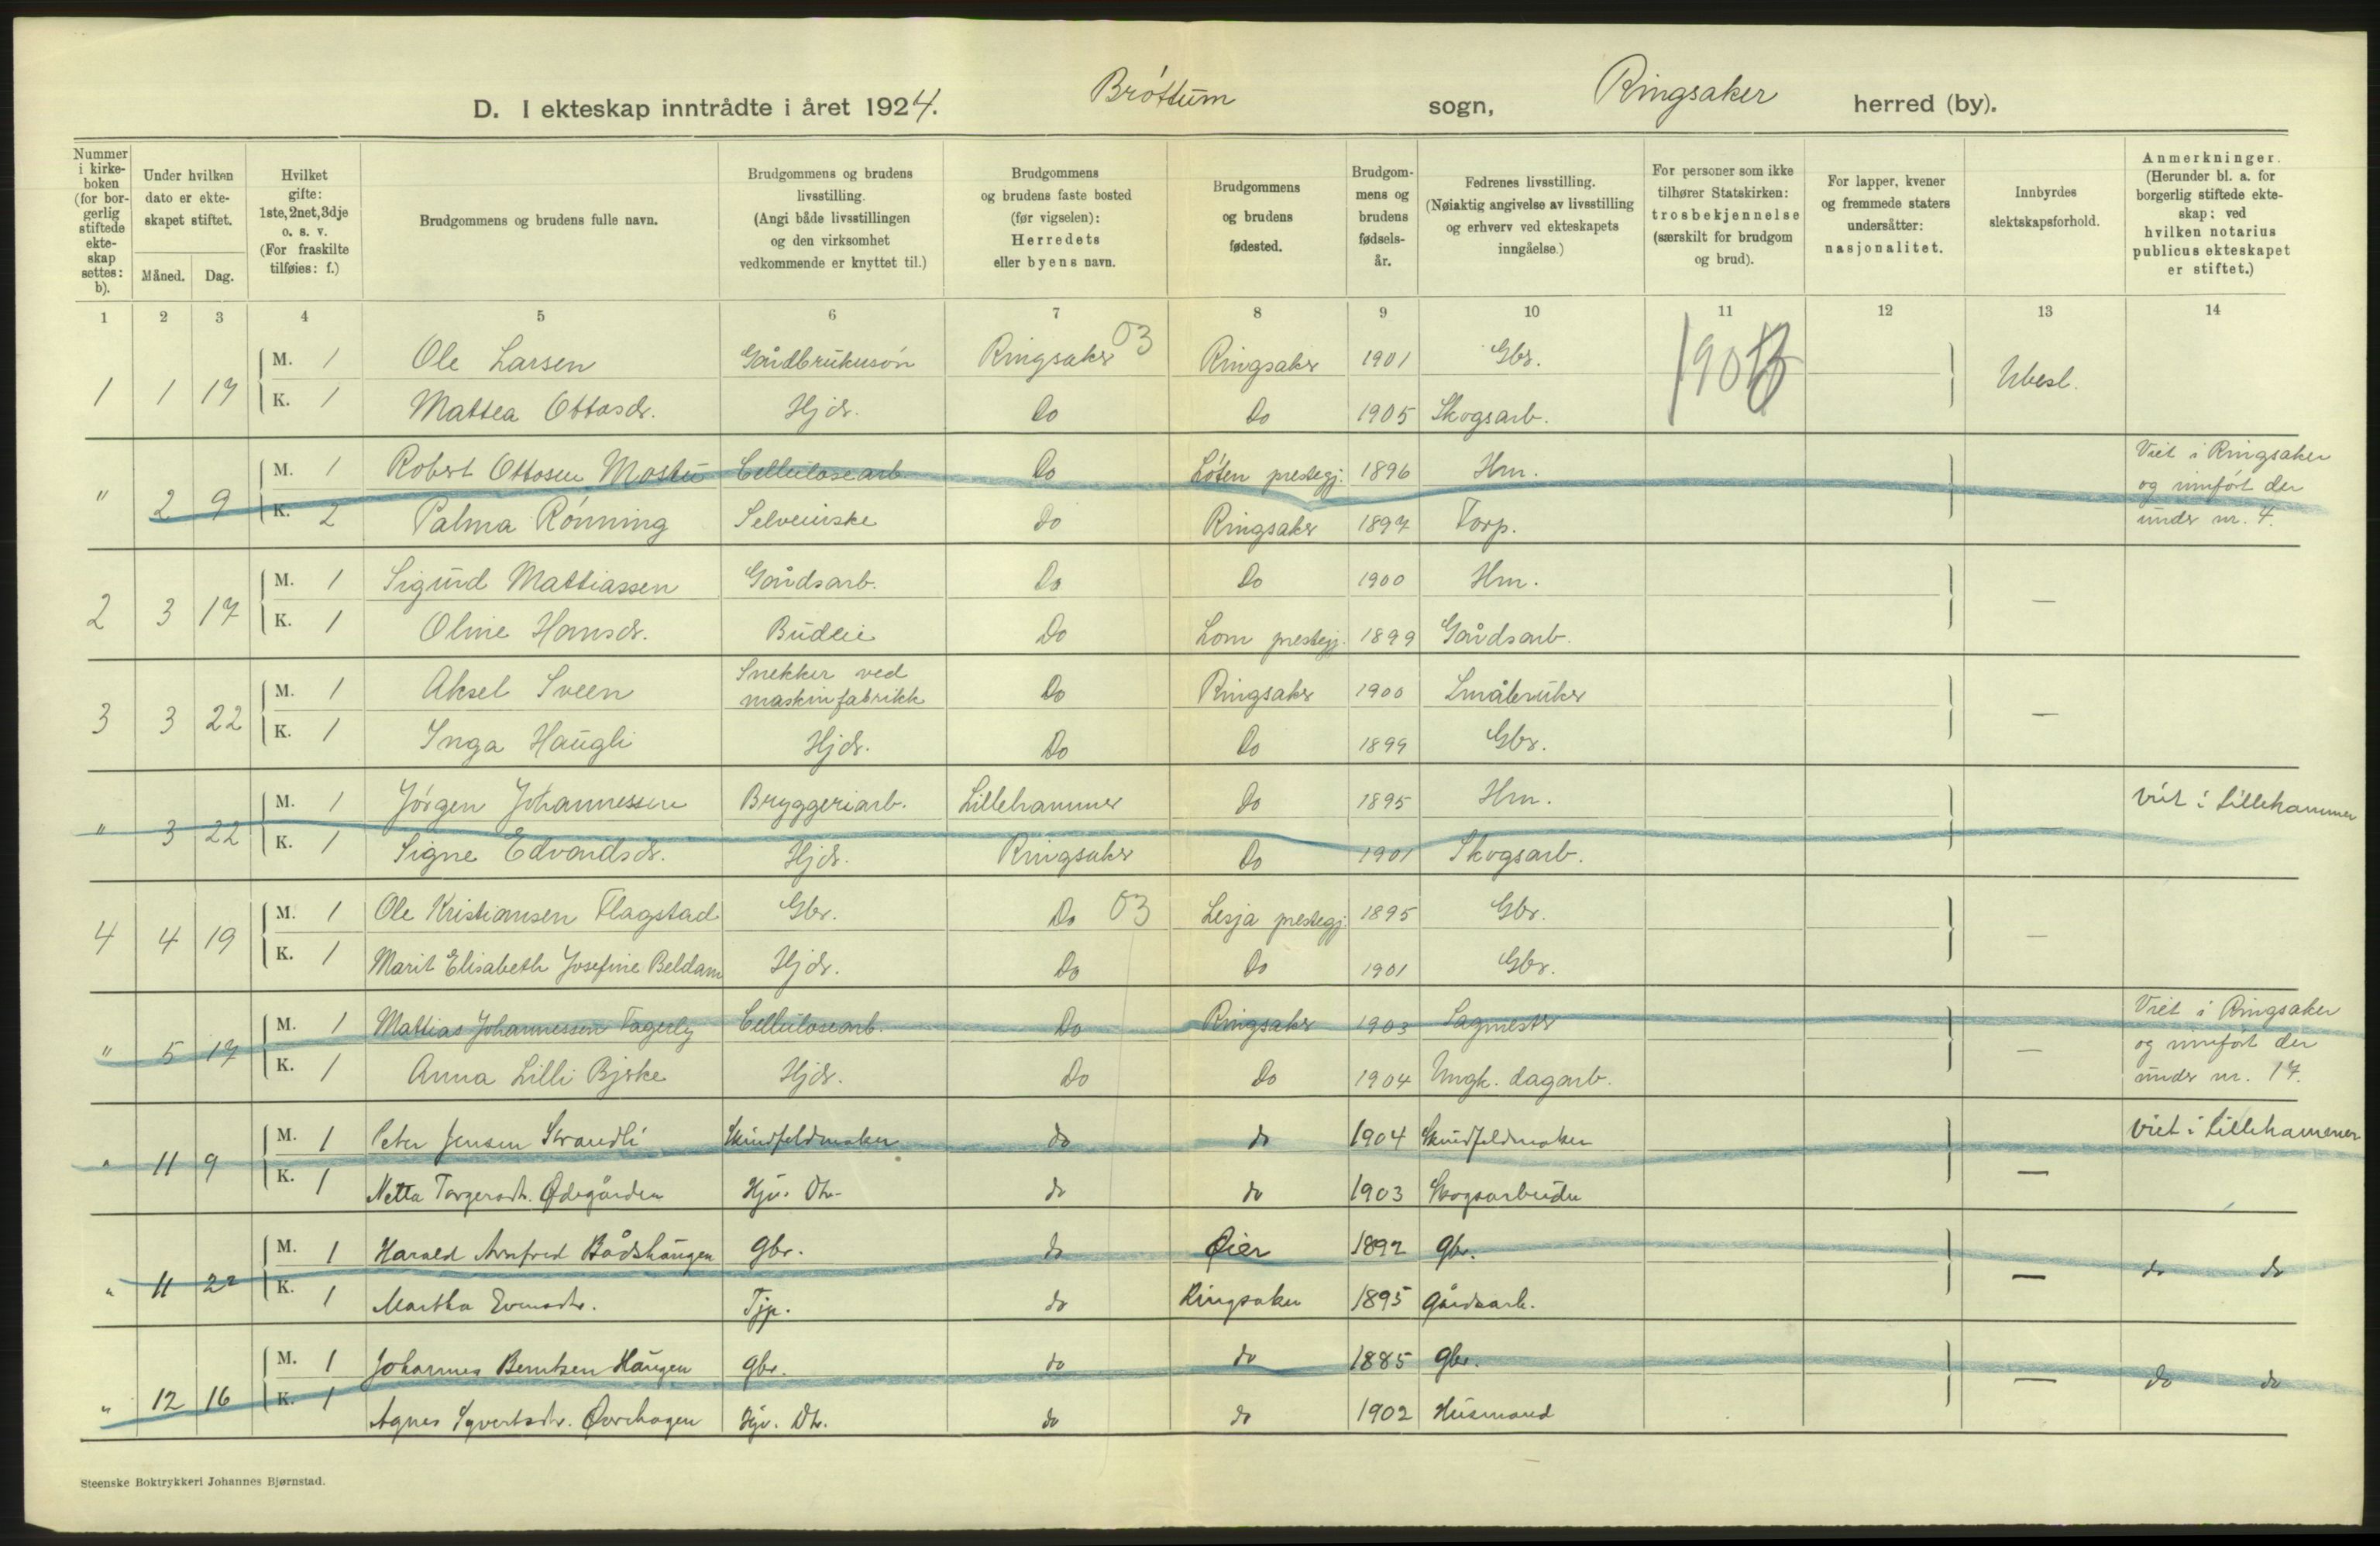 D. I ekteskap inntrådte i året 1924. Brøttum sogn, Ringsaker herred (by).
Nummer i kirke-boken (for bor-gerlig stiftede ekte-skap settes: b).
Under hvilken dato er ekte-skapet stiftet.
Måned. Dag.
Hvilket gifte: 1ste, 2net, 3dje o. s. v. (For fraskilte tilføies: f.)
Brudgommens og brudens fulle navn.
Brudgommens og brudens livsstilling. (Angi både livsstillingen og den virksomhet vedkommende er knyttet til.)
Brudgommens og brudens faste bosted (før vigselen): Herredets eller byens navn.
Brudgommens og brudens fødested.
Brudgom-mens og brudens fødsels-år.
Fedrenes livsstilling. (Nøiaktig angivelse av livsstilling og erhverv ved ekteskapets inngåelse.)
For personer som ikke tilhører Statskirken: trosbekjennelse (særskilt for brudgom og brud).
For lapper, kvener og fremmede staters undersåtter: nasjonalitet.
Innbyrdes slektskapsforhold.
Anmerkninger. (Herunder bl. a. for borgerlig stiftede ekte-skap; ved hvilken notarius publicus ekteskapet er stiftet.)
1 2 3 4 5 6 7 8 9 10 11 12 13 14
1 1 17 M. 1 Ole Larsen Gårdbrukersøn Ringsaker 03 Ringsaker 1901 Gbr. Ubesl.
K. 1 Mattea Ottosdr. Hjdr. Do Do 1905 Skogsarb.
" 2 9 M. 1 Robert Ottosen Mostu Cellulosearb. Do Løten prestegj. 1896 Hm. — Viet i Ringsaker og innført der under nr. 4.
K. 2 Palma Rønning Selveierske Do Ringsaker 1897 Torp.
2 3 17 M. 1 Sigurd Mattiassen Gårdsarb. Do Do 1900 Hm. —
K. 1 Oline Hansdr. Budeie Do Lom prestegj. 1899 Gårdsarb.
3 3 22 M. 1 Aksel Sveen Snekker ved maskinfabrikk Do Ringsaker 1900 Småbruker —
K. 1 Inga Haugli Hjdr. Do Do 1899 Gbr.
" 3 22 M. 1 Jørgen Johannessen Bryggeriarb. Lillehammer Do 1895 Hm. — Viet i Lillehammer
K. 1 Signe Edvardsdr. Hjdr. Ringsaker Do 1901 Skogsarb.
4 4 19 M. 1 Ole Kristiansen Flagstad Gbr. Do 03 Lesja prestegj. 1895 Gbr. —
K. 1 Marit Elisabeth Josefine Beldam Hjdr. Do Do 1901 Gbr.
" 5 17 M. 1 Mattias Johannessen Fagerly Cellulosearb. Do Ringsaker 1903 Sagmester — Viet i Ringsaker og innført der under nr. 17.
K. 1 Anna Lilli Bjerke Hjdr. Do Do 1904 Ungk. dagarb.
" 11 9 M. 1 Peter Jensen Strandli Skindfeldmaker do do 1904 Skindfeldmaker — Viet i Lillehammer
K. 1 Netta Torgersdtr. Ødegården Hjv. Dtr. do do 1903 Skogsarbeider
" 11 22 M. 1 Harald Arnfred Bådshaugen Gbr. do Øier 1892 Gbr. — do do
K. 1 Martha Evensdtr. Tjp. do Ringsaker 1895 Gårdsarb.
" 12 16 M. 1 Johannes Berntsen Haugen Gbr. do do 1885 Gbr. — do do
K. 1 Agnes Syvertsdtr. Hjv. Dtr. do do 1902 Husmand
Steenske Boktrykkeri Johannes Bjørnstad.